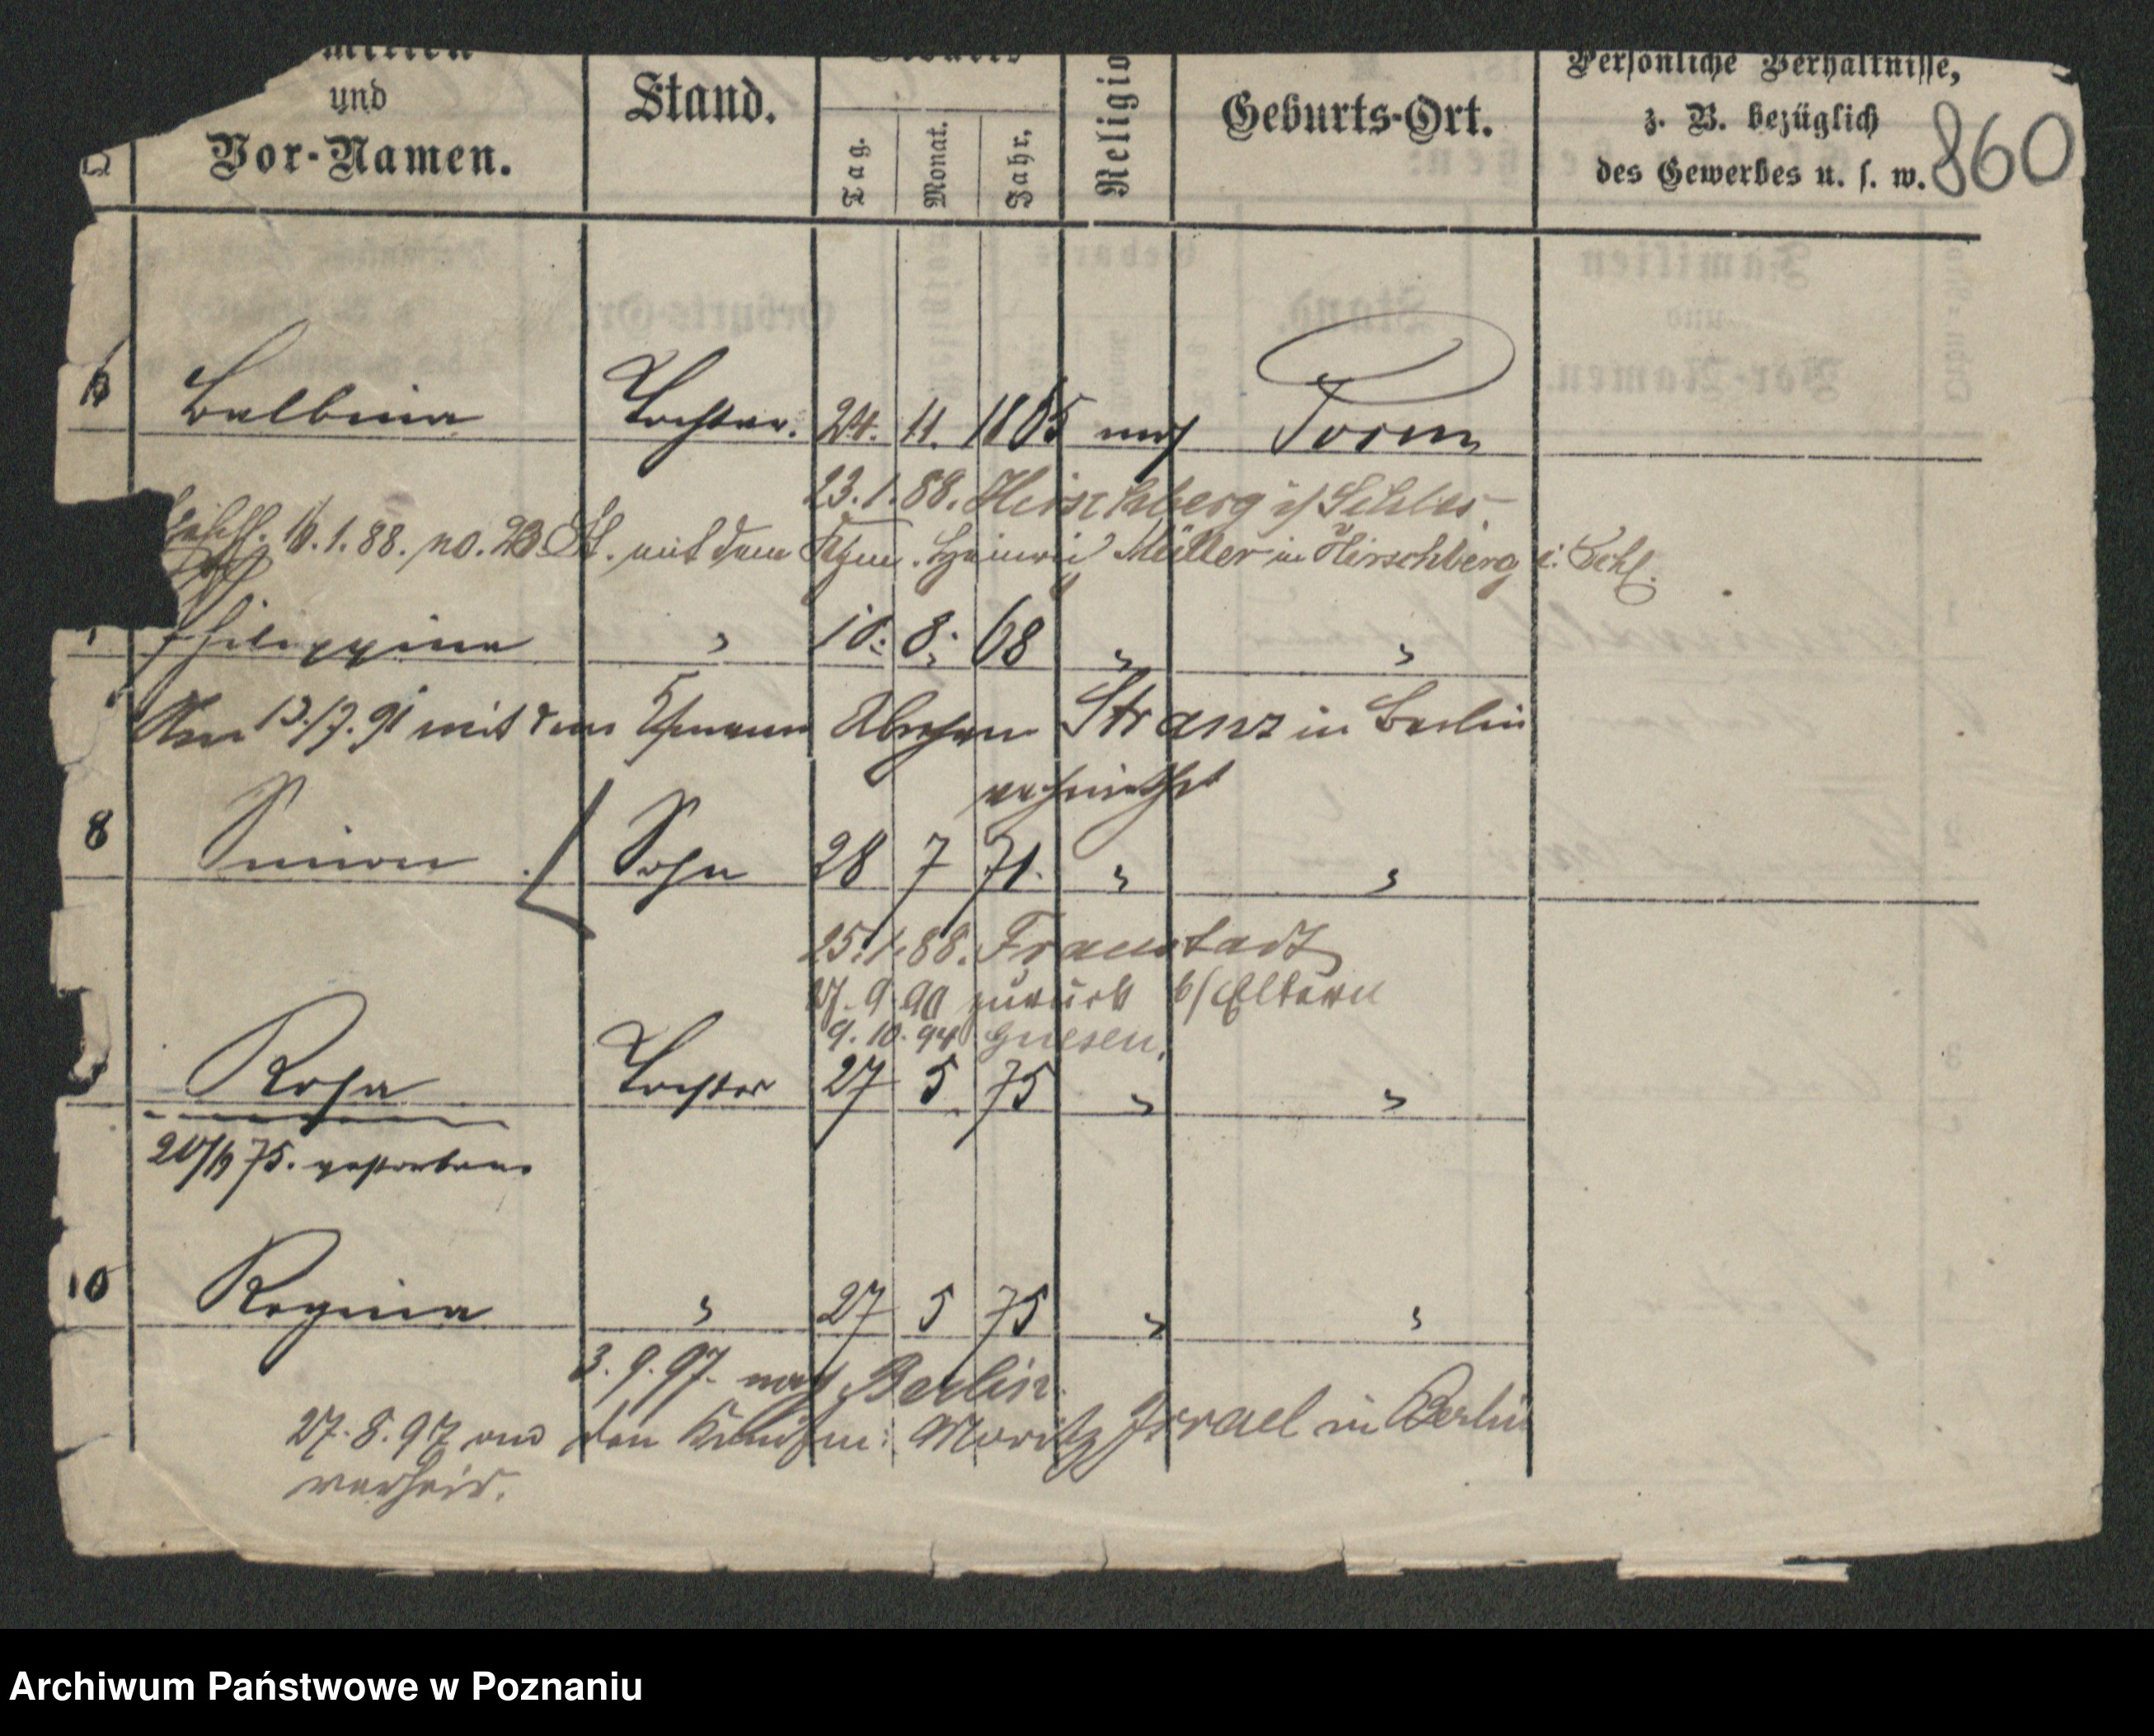 und
Vor-Namen.
Stand.
Tag.
Monat.
Jahr.
Religio
Geburts-Ort.
Persönliche Verhältnisse,
z. B. bezüglich
des Gewerbes u. s. w.
860
Balbina Tochter. 24. 11. 1865 mos Posen
23. 1. 88. Hirschberg i/ Schles.
16. 1. 88. no. 23 St. mit dem Kfm. Heinrich Müller in Hirschberg i. Schl.
Philippina " 10. 8. 68 " "
Am 13/7. 91 mit dem Kfmann Abraham Stranz in Berlin
verheirathet
8 Simon Sohn 28 7 71. " "
25. 1. 88. Fraustadt
27. 9. 90 zurück b/ Eltern
9. 10. 94 Gnesen.
Rosa Tochter 27 5 75 " "
20/9 75. gestorben.
10 Regina " 27 5 75 " "
3. 9. 97. nach Berlin.
27. 8. 97 an den Kaufm. Moritz Israel in Berlin
verheir.
Archiwum Państwowe w Poznaniu